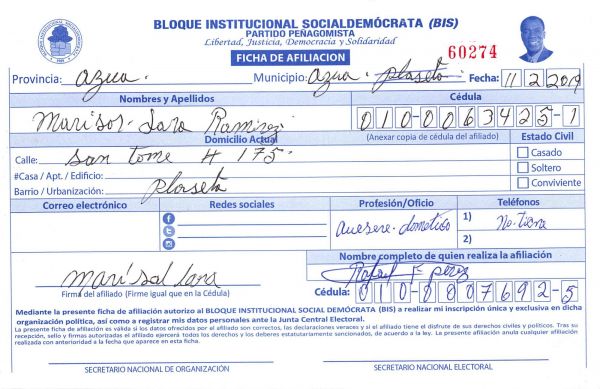 BLOQUE INSTITUCIONAL SOCIALDEMÓCRATA (BIS)
PARTIDO PEÑAGOMISTA
Libertad, Justicia, Democracia y Solidaridad
FICHA DE AFILIACION
60274
Provincia: azua. Municipio: azua. Fecha: 11 2 2019
Nombres y Apellidos Cédula
Marisol Lara Ramirez 010-0063425-1
Domicilio Actual (Anexar copia de cédula del afiliado) Estado Civil
Calle: San tome # 175. Casado
#Casa / Apt. / Edificio: Soltero
Barrio / Urbanización: plaseta Conviviente
Correo electrónico Redes sociales Profesión/Oficio Teléfonos
1) No. tiene
2)
Nombre completo de quien realiza la afiliación
marisol lara Rafael F perez
Firma del afiliado (Firme igual que en la Cédula) Cédula: 010-0007692-5
Mediante la presente ficha de afiliación autorizo al BLOQUE INSTITUCIONAL SOCIAL DEMÓCRATA (BIS) a realizar mi inscripción única y exclusiva en dicha
organización política, así como a registrar mis datos personales ante la Junta Central Electoral.
La presente ficha de afiliación es válida si los datos ofrecidos por el afiliado son correctos, las declaraciones veraces y si el afiliado tiene el disfrute de sus derechos civiles y políticos. Tras su
recepción, sello y firmas autorizadas el afiliado ejercerá todos los derechos y los deberes estatutariamente sancionados, de acuerdo a la ley. La presente afiliación anula cualquier afiliación
realizada con anterioridad a la fecha que aparece en esta ficha.
SECRETARIO NACIONAL DE ORGANIZACIÓN SECRETARIO NACIONAL ELECTORAL